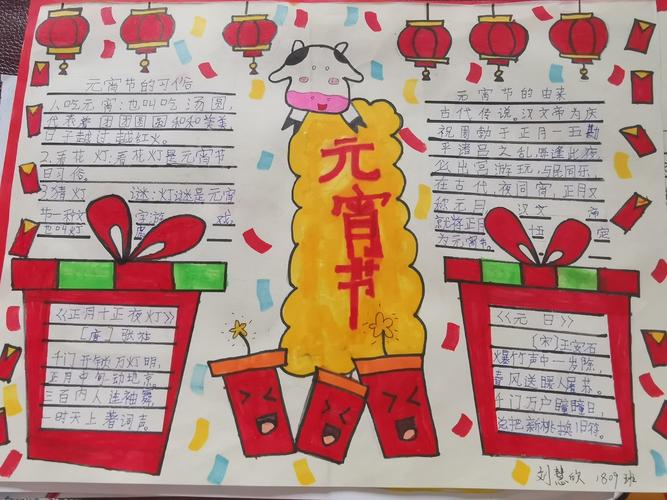 元宵节的习俗
1.吃元宵:也叫吃汤圆,
代表着团团圆圆和和美美
日子越过越红火。
2.看花灯:看花灯是元宵节
日习俗。
3.猜灯谜:灯谜是元宵
节一种文字游戏
也叫灯
元宵节
元宵节的由来
古代传说。汉文帝为庆
祝周勃于正月十五勘
平诸吕之乱,每逢此夜
必出宫游玩,与民同乐,
在古代夜同宵,正月又
称元月 汉文帝
就将正月十五定
为元宵节。
《正月十五夜灯》
[唐] 张祜
千门开锁万灯明,
正月中旬动地京。
三百内人连袖舞,
一时天上著词声。
《元日》
[宋]王安石
爆竹声中一岁除,
春风送暖入屠苏。
千门万户曈曈日,
总把新桃换旧符。
刘慧欣 1809班